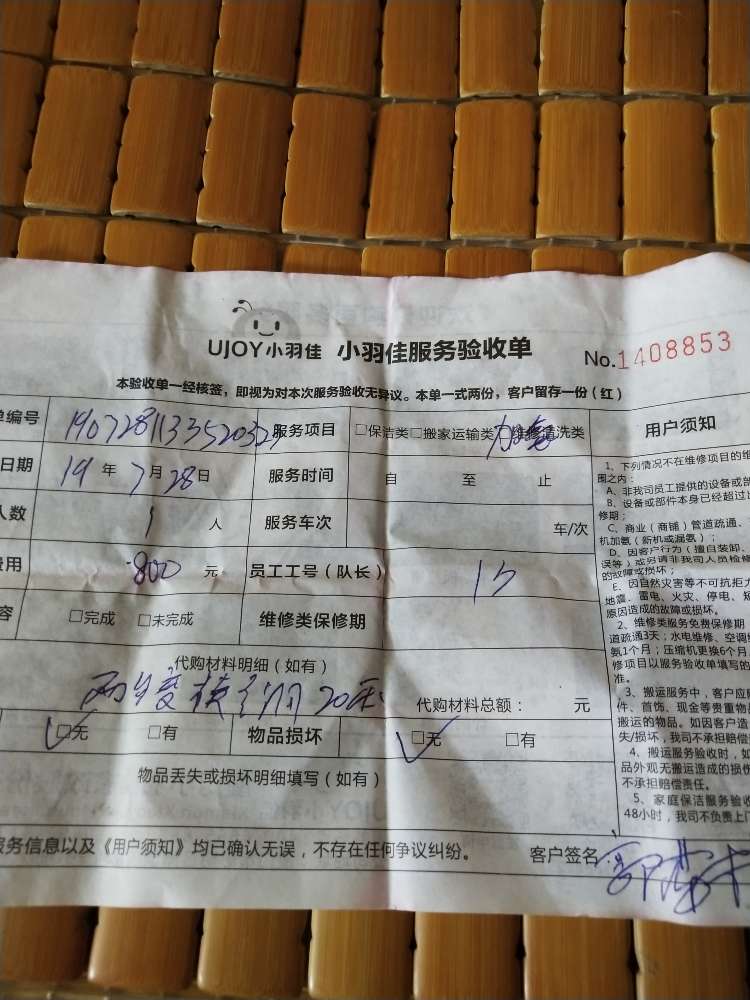 UJOY小羽佳 小羽佳服务验收单 No.1408853
本验收单一经核签，即视为对本次服务验收无异议。本单一式两份，客户留存一份（红）
单编号 服务项目 □保洁类□搬家运输类 维修清洗类 用户须知
日期 19年7月28日 服务时间 自 至 止
人数 1 人 服务车次 车/次
费用 800 元 员工工号（队长） 15
容 □完成 □未完成 维修类保修期
代购材料明细（如有）
代购材料总额： 元
□无 □有 物品损坏 □无 □有
物品丢失或损坏明细填写（如有）
服务信息以及《用户须知》均已确认无误，不存在任何争议纠纷。 客户签名：
1、下列情况不在维修项目的维
围之内：
A、非我司员工提供的设备或部
B、设备或部件本身已经超过
修期；
C、商业（商铺）管道疏通、
机加氨（新机或漏氨）；
D、因客户行为（擅自装卸、
误等）或另请非我司人员检修
的故障或损坏；
E、因自然灾害等不可抗拒力
地震、雷电、火灾、停电、短
原因造成的故障或损坏。
2、维修类服务免费保修期
道疏通3天；水电维修、空调
氨1个月；压缩机更换6个月
修项目以服务验收单填写的
准。
3、搬运服务中，客户应
件、首饰、现金等贵重物品
搬运的物品。如因客户造
失/损坏，我司不承担赔偿
4、搬运服务验收时，如
品外观无搬运造成的损伤
不承担赔偿责任。
5、家庭保洁服务验收
48小时，我司不负责上门